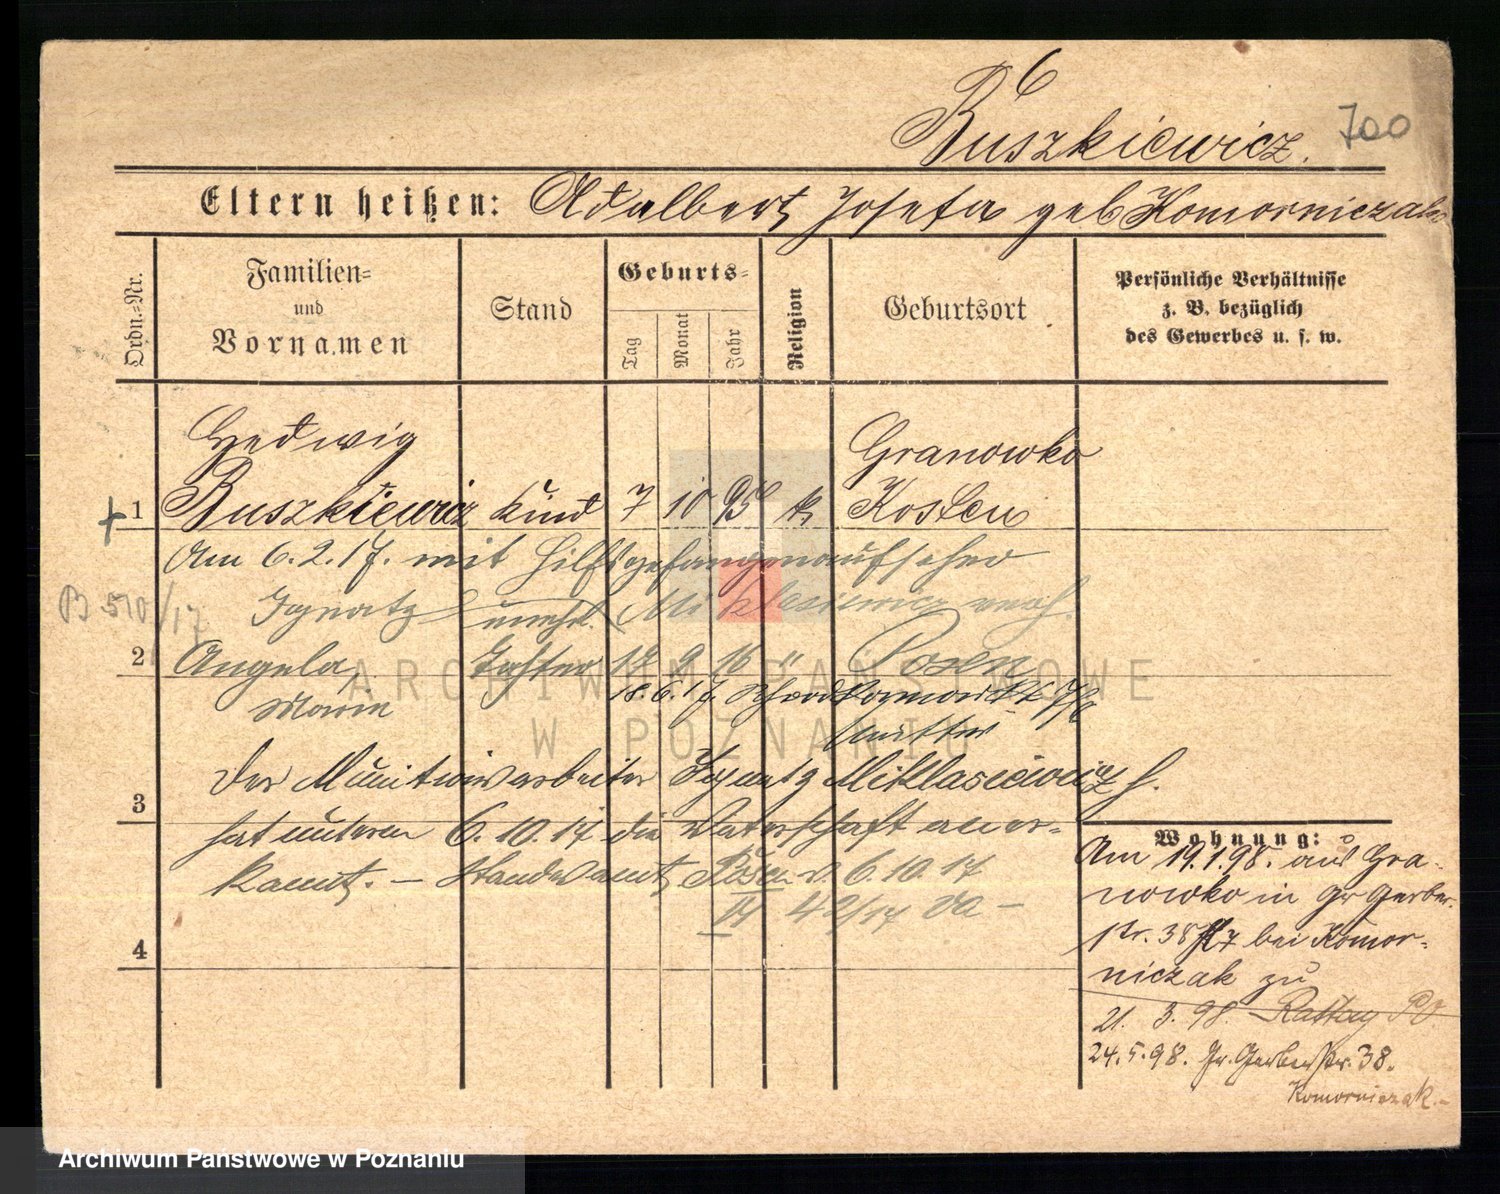 6
Buszkiewicz. 700
Eltern heißen: Adalbert Josefa geb Komorniczak
Ordn.-Nr.
Familien-
und
Vornamen
Stand
Geburts-
Tag
Monat
Jahr
Religion
Geburtsort
Persönliche Verhältnisse
z. B. bezüglich
des Gewerbes u. s. w.
Hedwig Granowko
+ 1 Buszkiewicz Kind 7 10 95 k Kosten
Am 6.2.17. mit Hilfsgefangenaufseher
B 510/17 Ignatz Miklasiewicz verh.
2 Angela, Tochter 9 16 " Posen
Marie 18.6.17.
Mutter
Der Munitionsarbeiter Ignatz Miklasiewicz
3
hat unterm 6.10.17 die Vaterschaft aner-
kannt. – Standesamt Posen v. 6.10.17
42/17
4
Wohnung:
Am 19.1.98. aus Gra-
nowko in Gr Gerber-
str. 38 bei Komor-
niczak zu
21. 3. 98. Rattay
24.5.98. Gr. Gerberstr. 38.
Komorniczak.-
ARCHIWUM PAŃSTWOWE
W POZNANIU
Archiwum Państwowe w Poznaniu